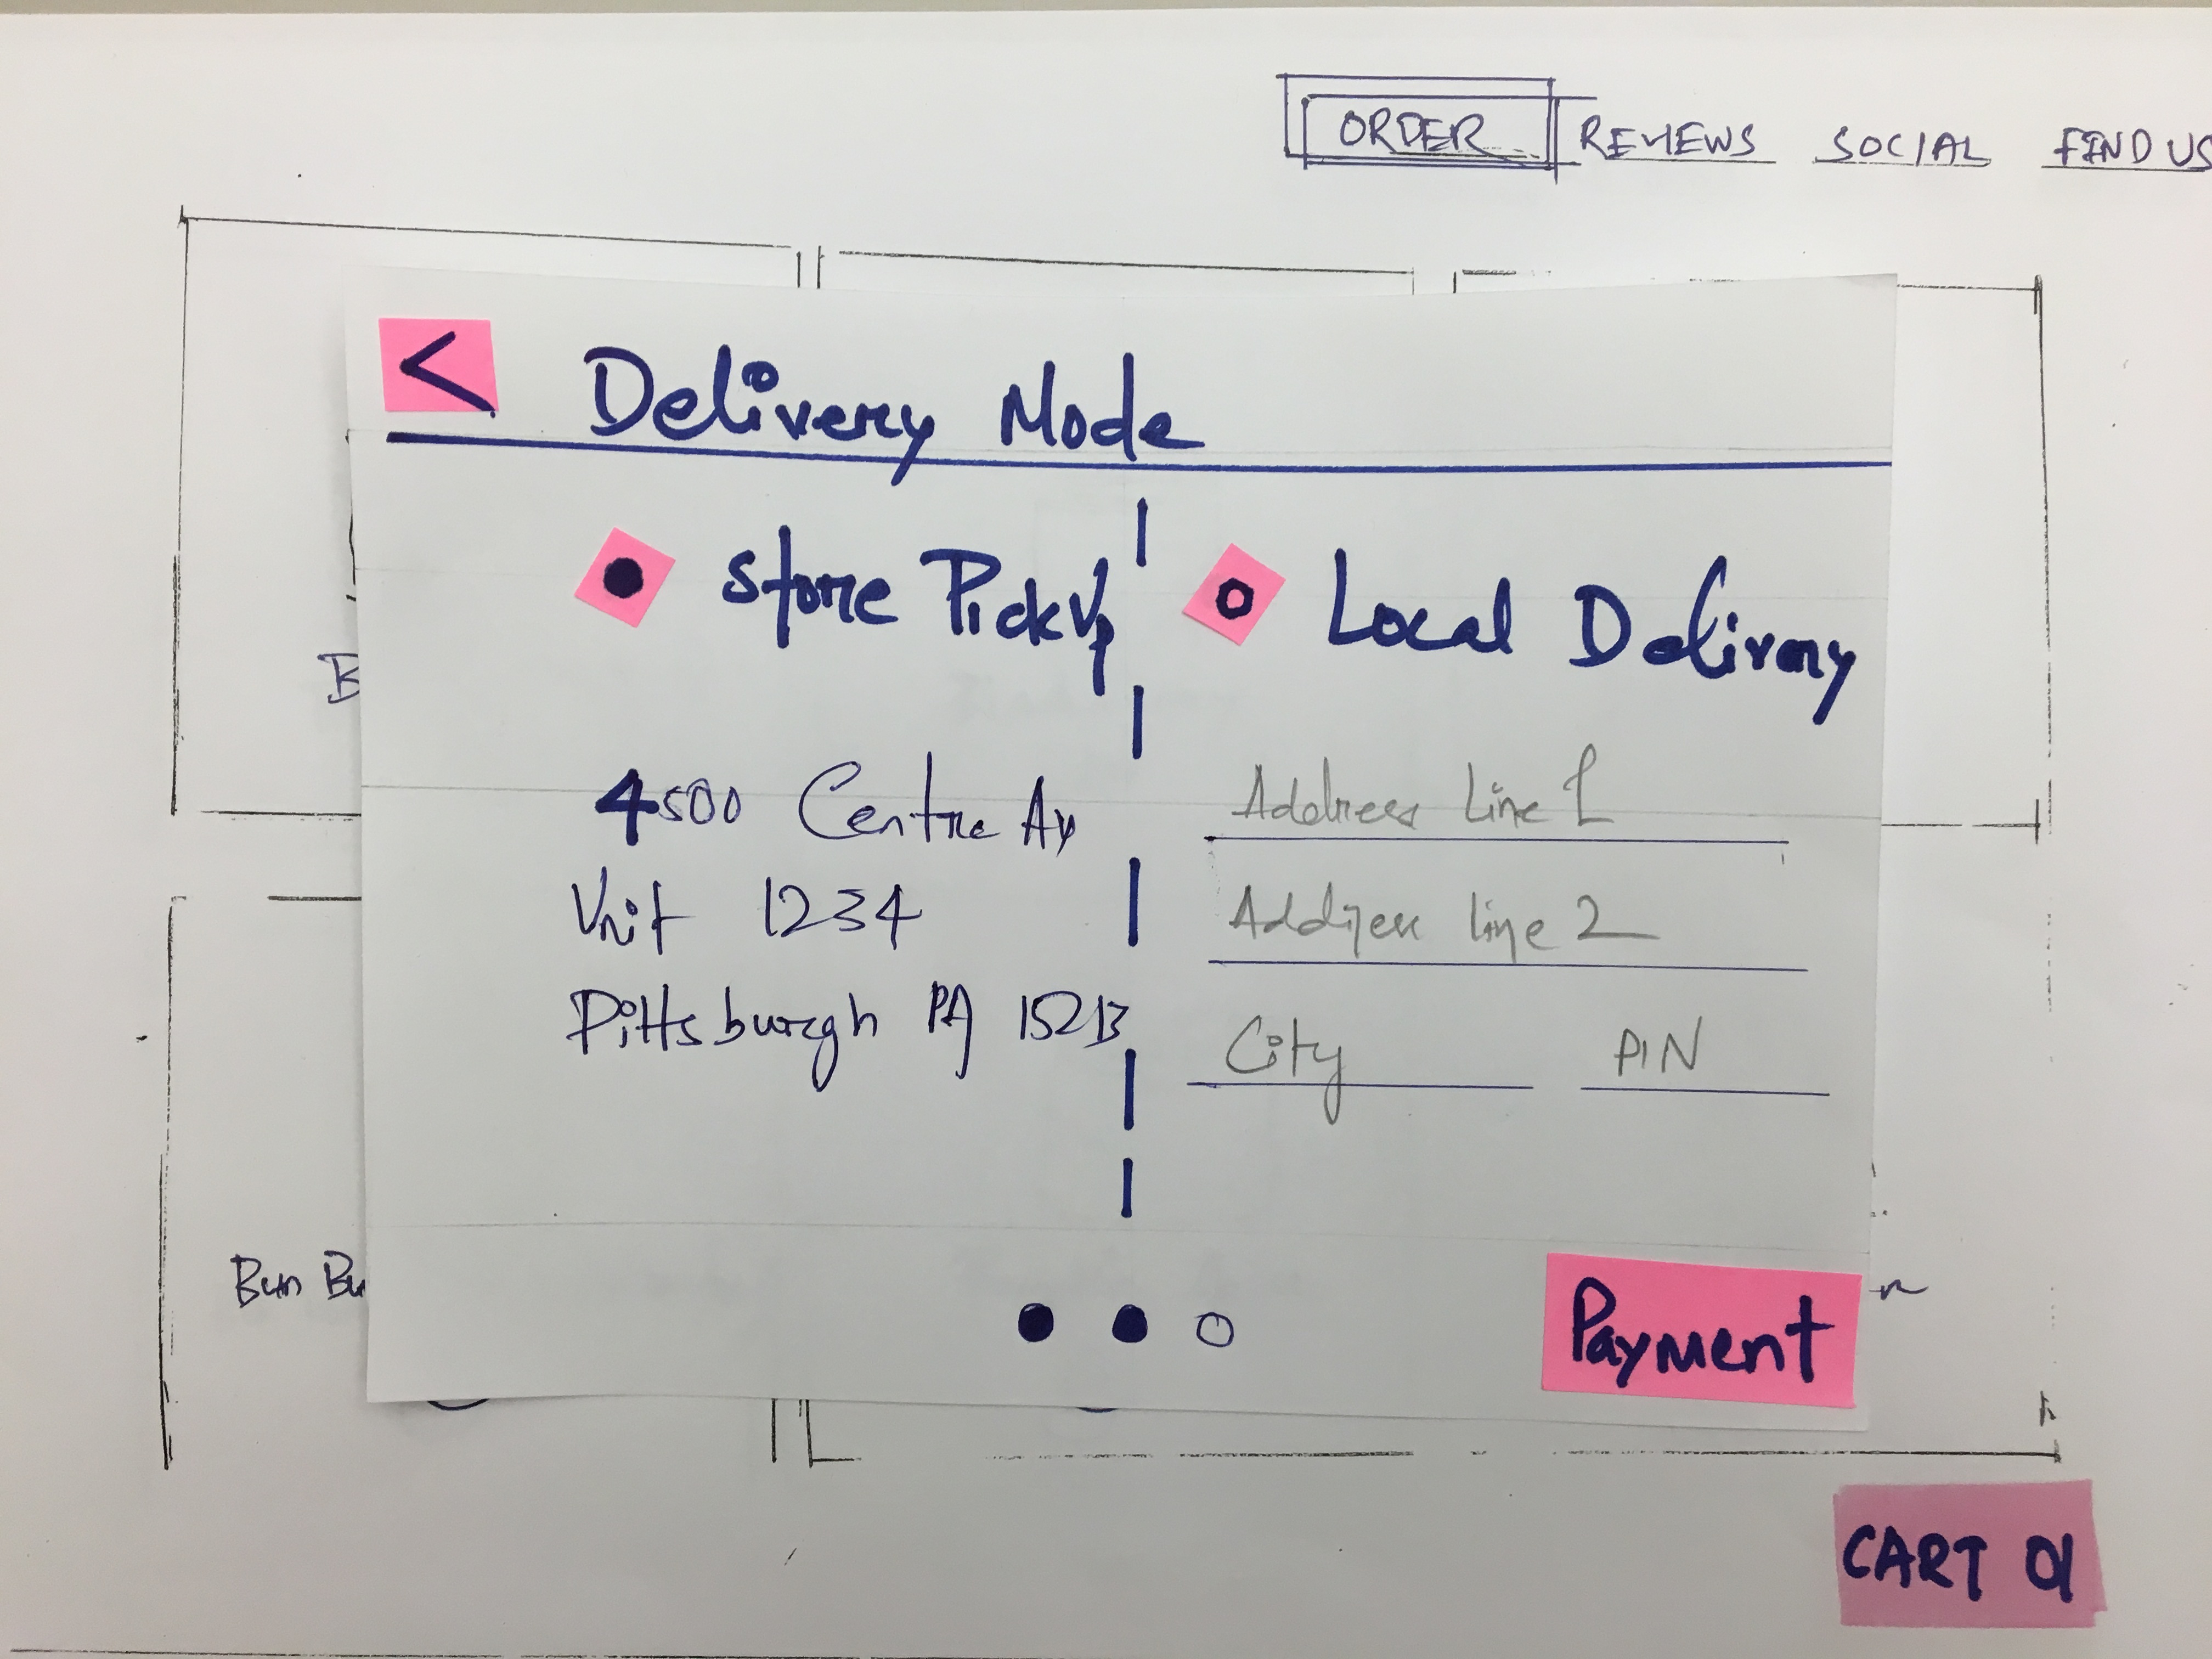 ORDER REVIEWS SOCIAL FIND US
< Delivery Mode
Store PickUp
Local Delivery
4500 Centre Av
Unit 1234
Pittsburgh PA 15213
Address Line 1
Address line 2
City PIN
Bun Bu
Payment
CART 01